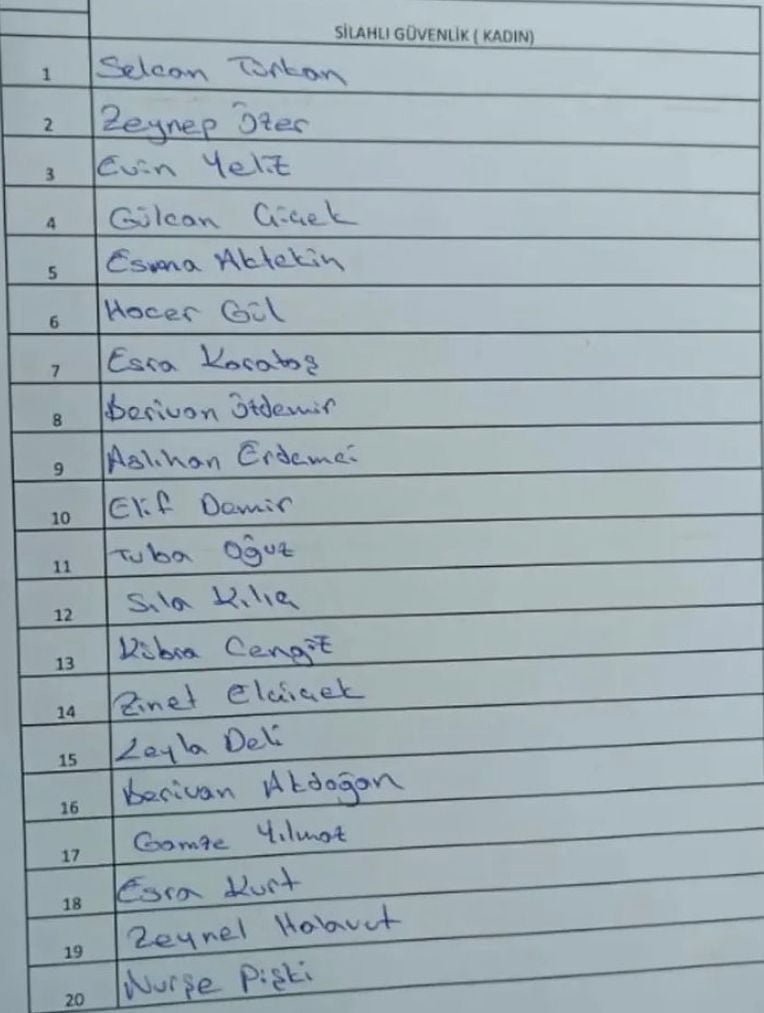 SİLAHLI GÜVENLİK ( KADIN)
1 Selcan Türkan
2 Zeynep Özer
3 Evin Yeliz
4 Gülcan Çiçek
5 Esma Aktekin
6 Hacer Gül
7 Esra Karataş
8 Berivan Özdemir
9 Aslıhan Erdemci
10 Elif Demir
11 Tuba Oğuz
12 Sıla Kılıç
13 Kübra Cengiz
14 Zinet Elçiçek
15 Leyla Deli
16 Berivan Akdoğan
17 Gamze Yılmaz
18 Esra Kurt
19 Zeynel Halavut
20 Nurşe Pişki